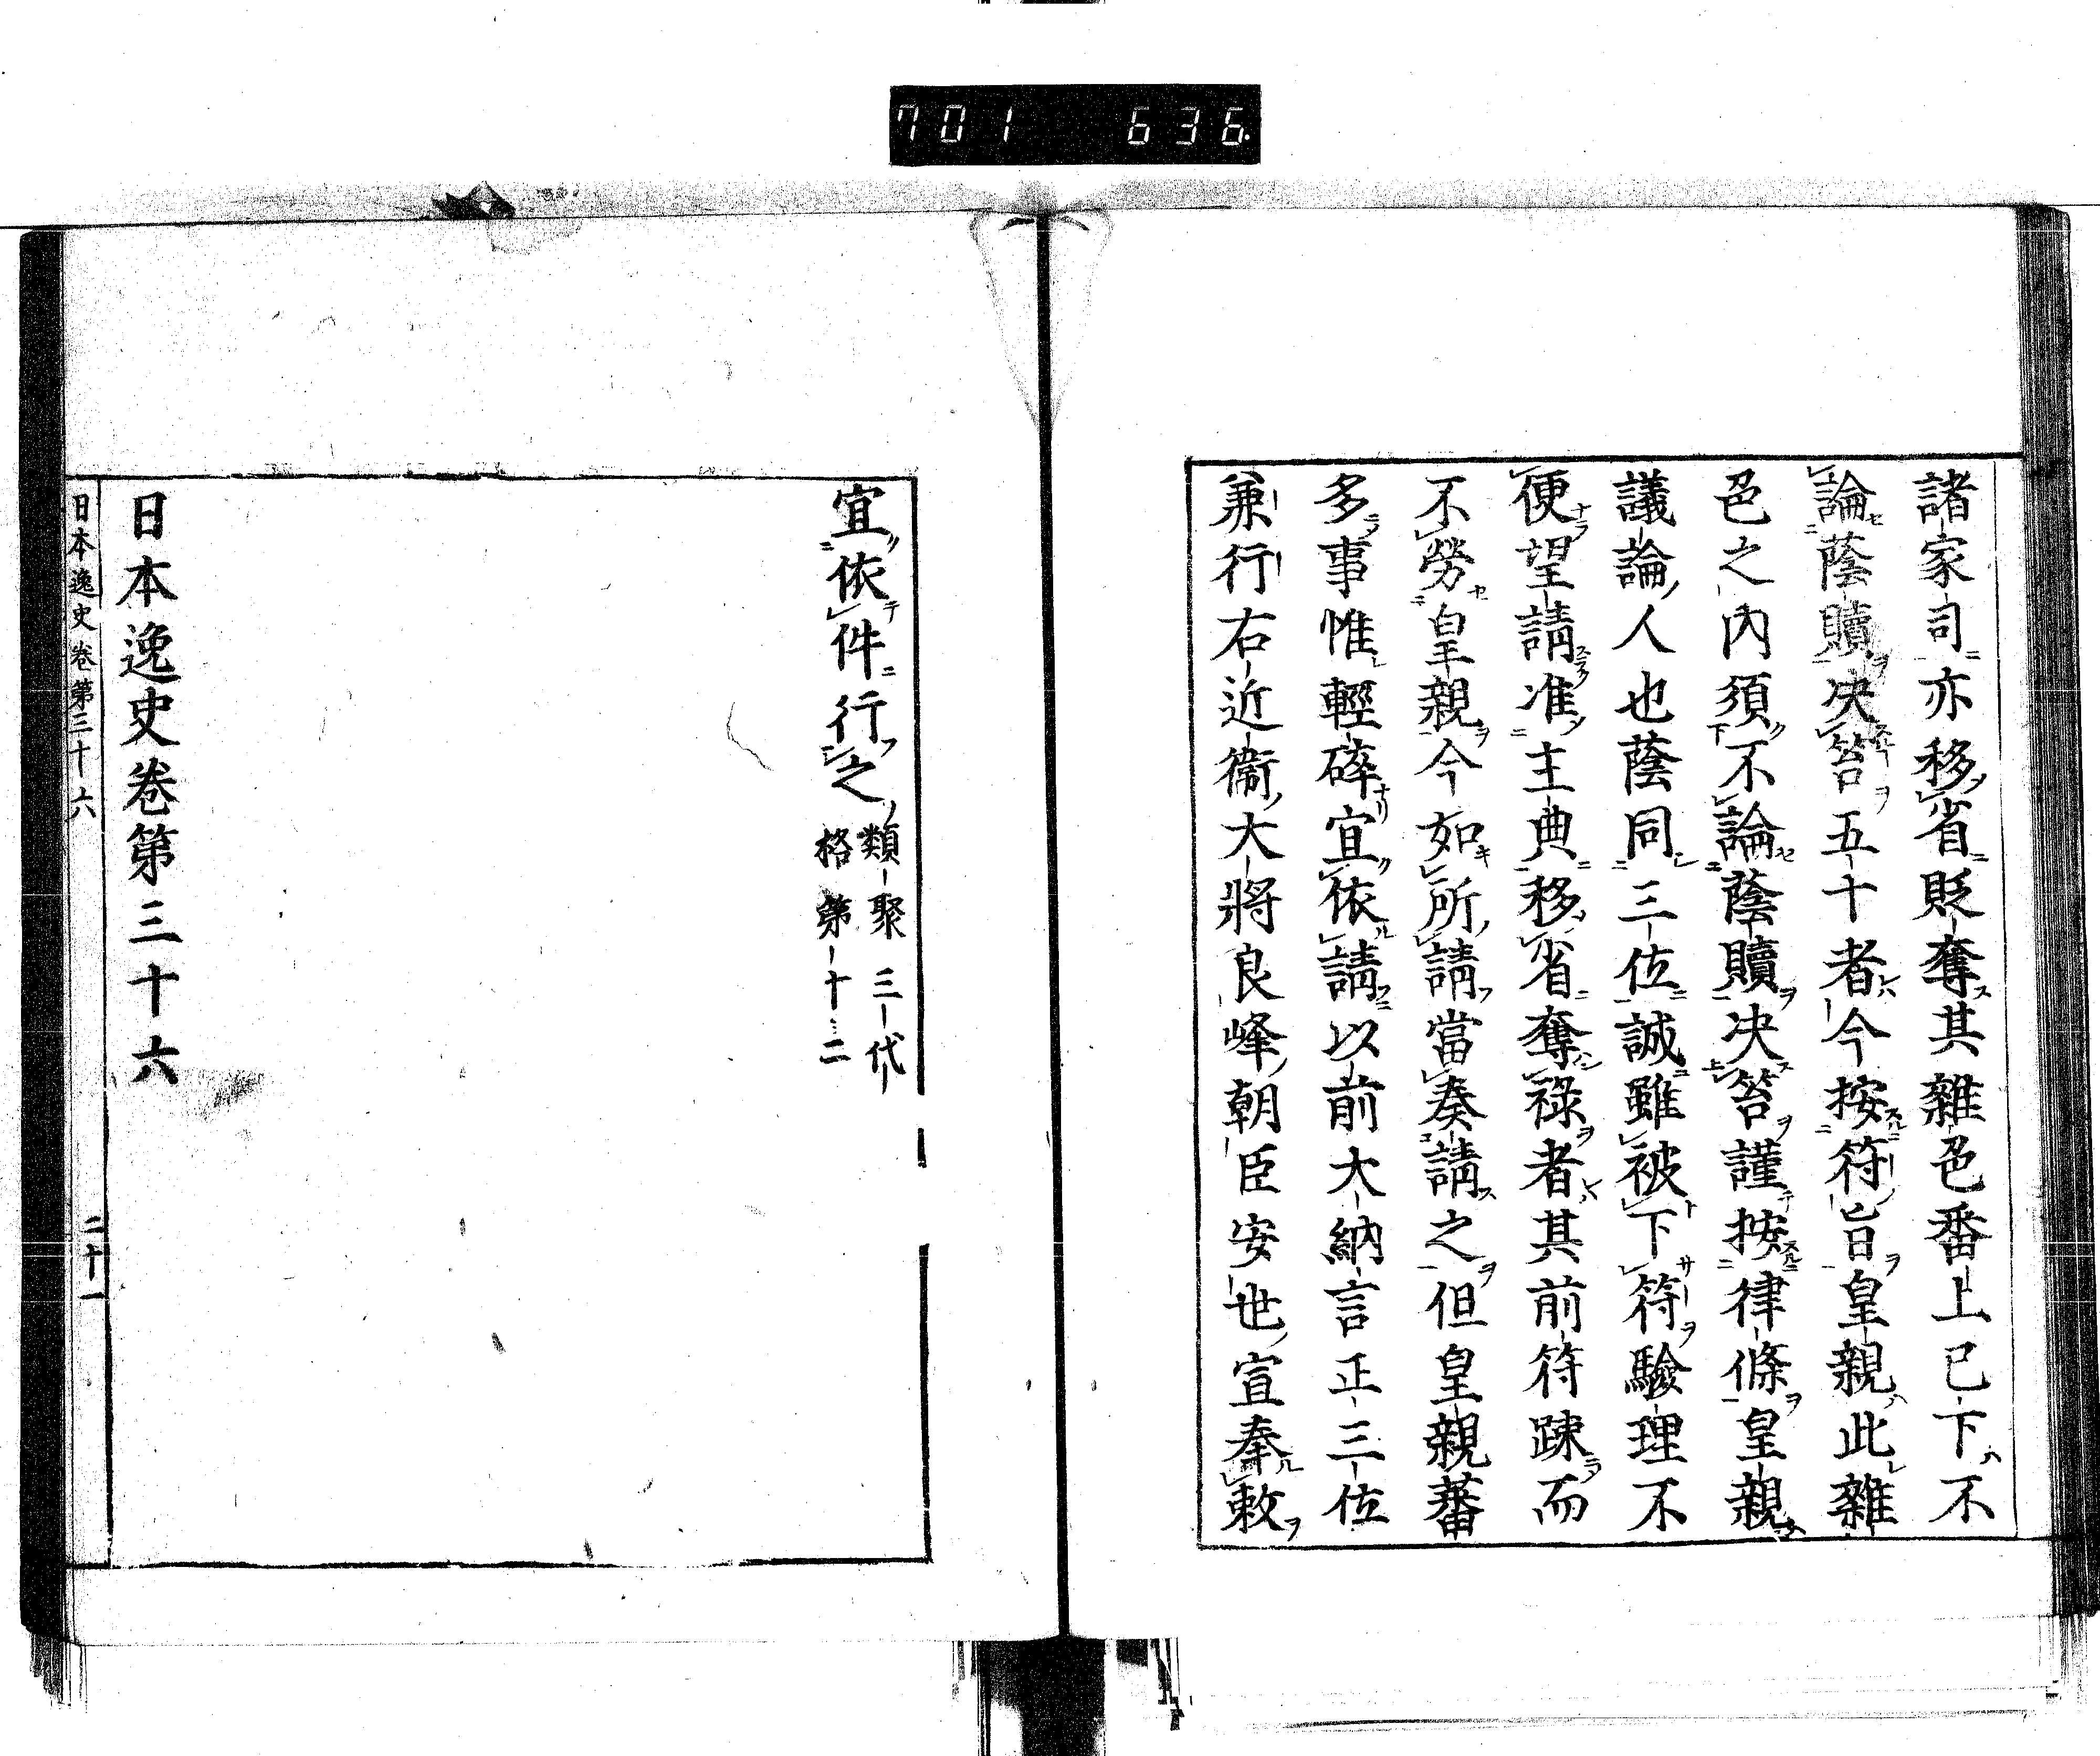 701 636
諸家司亦移省貶奪其雜色番上已下不
論蔭贖决笞五十者今按符旨皇親此雜
色之內須不論蔭贖决笞謹按律條皇親
議論人也蔭同三位誠雖被下符驗理不
便望請准主典移省奪祿者其前符踈而
不勞皇親今如所請當奏請之但皇親蕃
多事惟輕碎宜依請以前大納言正三位
兼行右近衞大將良峰朝臣安世宣奉敕
宜依件行之類聚三代
格第十二
日本逸史卷第三十六
日本逸史卷第三十六
二十一